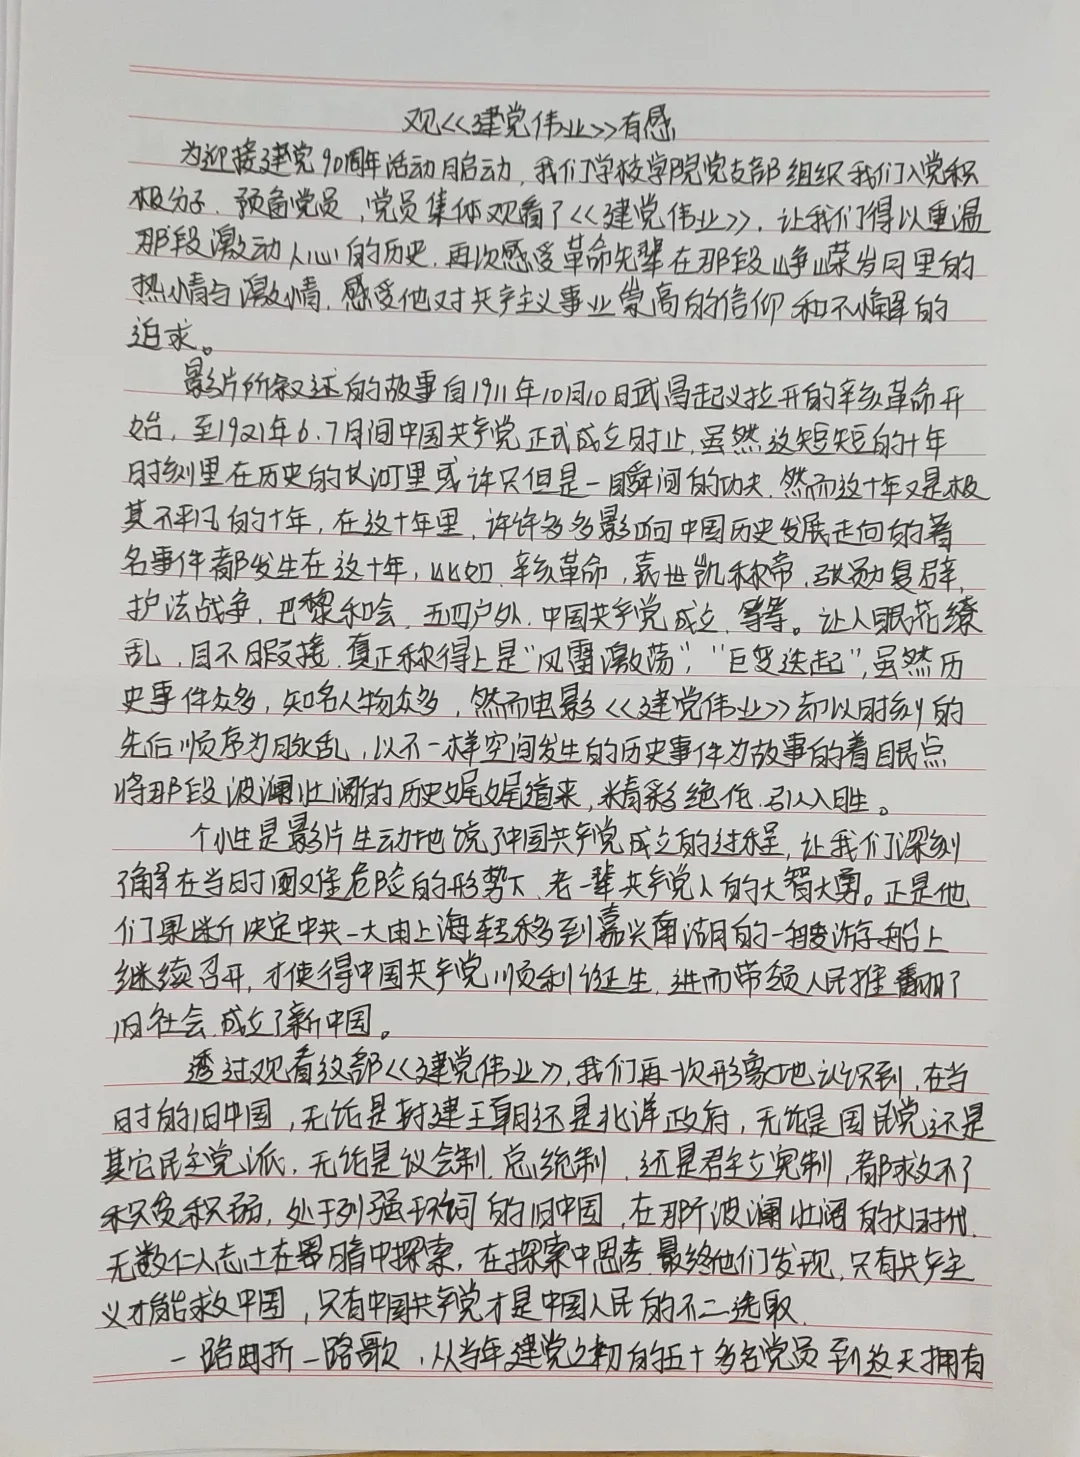 观<<建党伟业>>有感
为迎接建党90周年活动月启动，我们学校学院党支部组织我们入党积
极分子、预备党员，党员集体观看了<<建党伟业>>，让我们得以重温
那段激动人心的历史，再次感受革命先辈在那段峥嵘岁月里的
热情与激情，感受他对共产主义事业崇高的信仰和不懈的
追求。
影片所叙述的故事自1911年10月10日武昌起义拉开的辛亥革命开
始，至1921年6、7月间中国共产党正式成立时止，虽然这短短的十年
时刻里在历史的长河里或许只但是一瞬间的功夫，然而这十年又是极
其不平凡的十年，在这十年里，许许多多影响中国历史发展走向的著
名事件都发生在这十年，比如，辛亥革命，袁世凯称帝，张勋复辟，
护法战争，巴黎和会，五四户外，中国共产党成立，等等。让人眼花缭
乱，目不暇接，真正称得上是“风雷激荡”，“巨变迭起”，虽然历
史事件众多，知名人物众多，然而电影<<建党伟业>>却以时刻的
先后顺序为脉乱，以不一样空间发生的历史事件为故事的着眼点
将那段波澜壮阔的历史娓娓道来，精彩绝伦，引人入胜。
个性是影片生动地说了中国共产党成立的过程，让我们深刻
了解在当时困难危险的形势下，老一辈共产党人的大智大勇。正是他
们果断决定中共一大由上海转移到嘉兴南湖的一艘游船上
继续召开，才使得中国共产党顺利诞生，进而带领人民推翻了
旧社会，成立了新中国。
透过观看这部<<建党伟业>>，我们再一次形象地认识到，在当
时的旧中国，无论是封建王朝还是北洋政府，无论是国民党还是
其它民主党派，无论是议会制，总统制，还是君主立宪制，都救不了
积贫积弱，处于列强环伺的旧中国，在那个波澜壮阔的大时代，
无数仁人志士在黑暗中探索，在探索中思考，最终他们发现，只有共产主
义才能救中国，只有中国共产党才是中国人民的不二选取。
一路曲折一路歌，从当年建党之初的五十多名党员到这天拥有